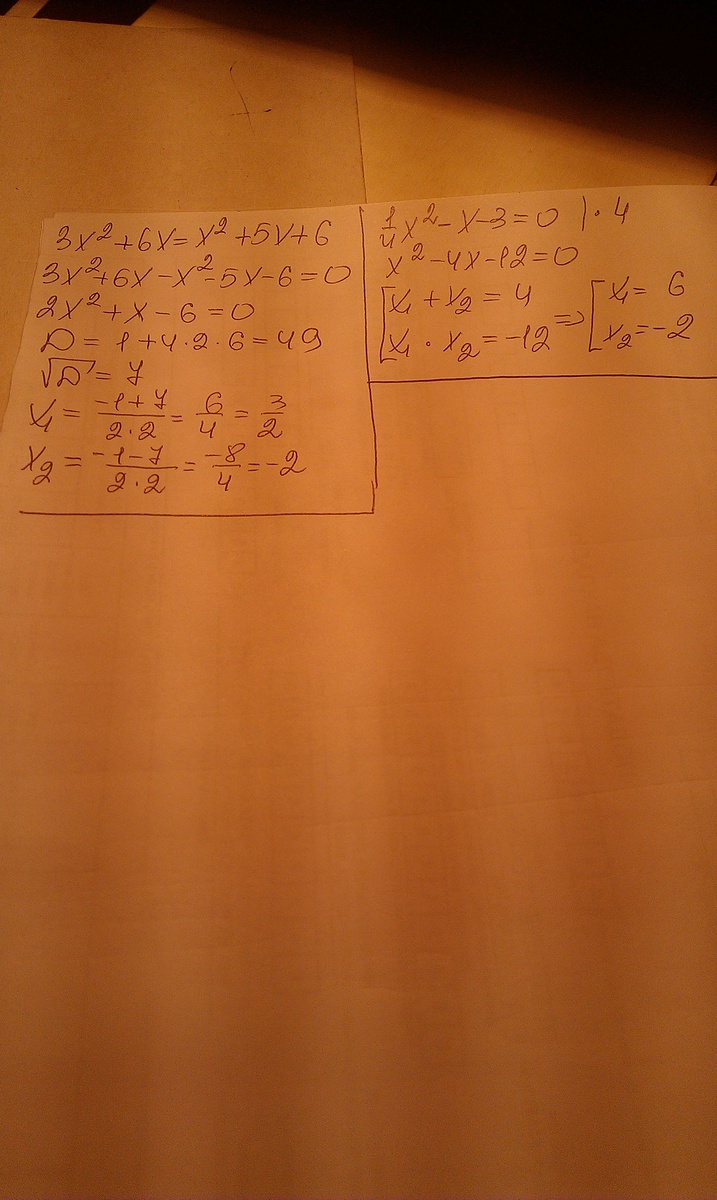 3x²+6x=x²+5x+6
3x²+6x-x²-5x-6=0
2x²+x-6=0
D=1+4·2·6=49
√D=7
x₁=(-1+7)/(2·2)=6/4=3/2
x₂=(-1-7)/(2·2)=-8/4=-2
1/4x²-x-3=0 |·4
x²-4x-12=0
[x₁+x₂=4
[x₁·x₂=-12 => [x₁=6
[x₂=-2